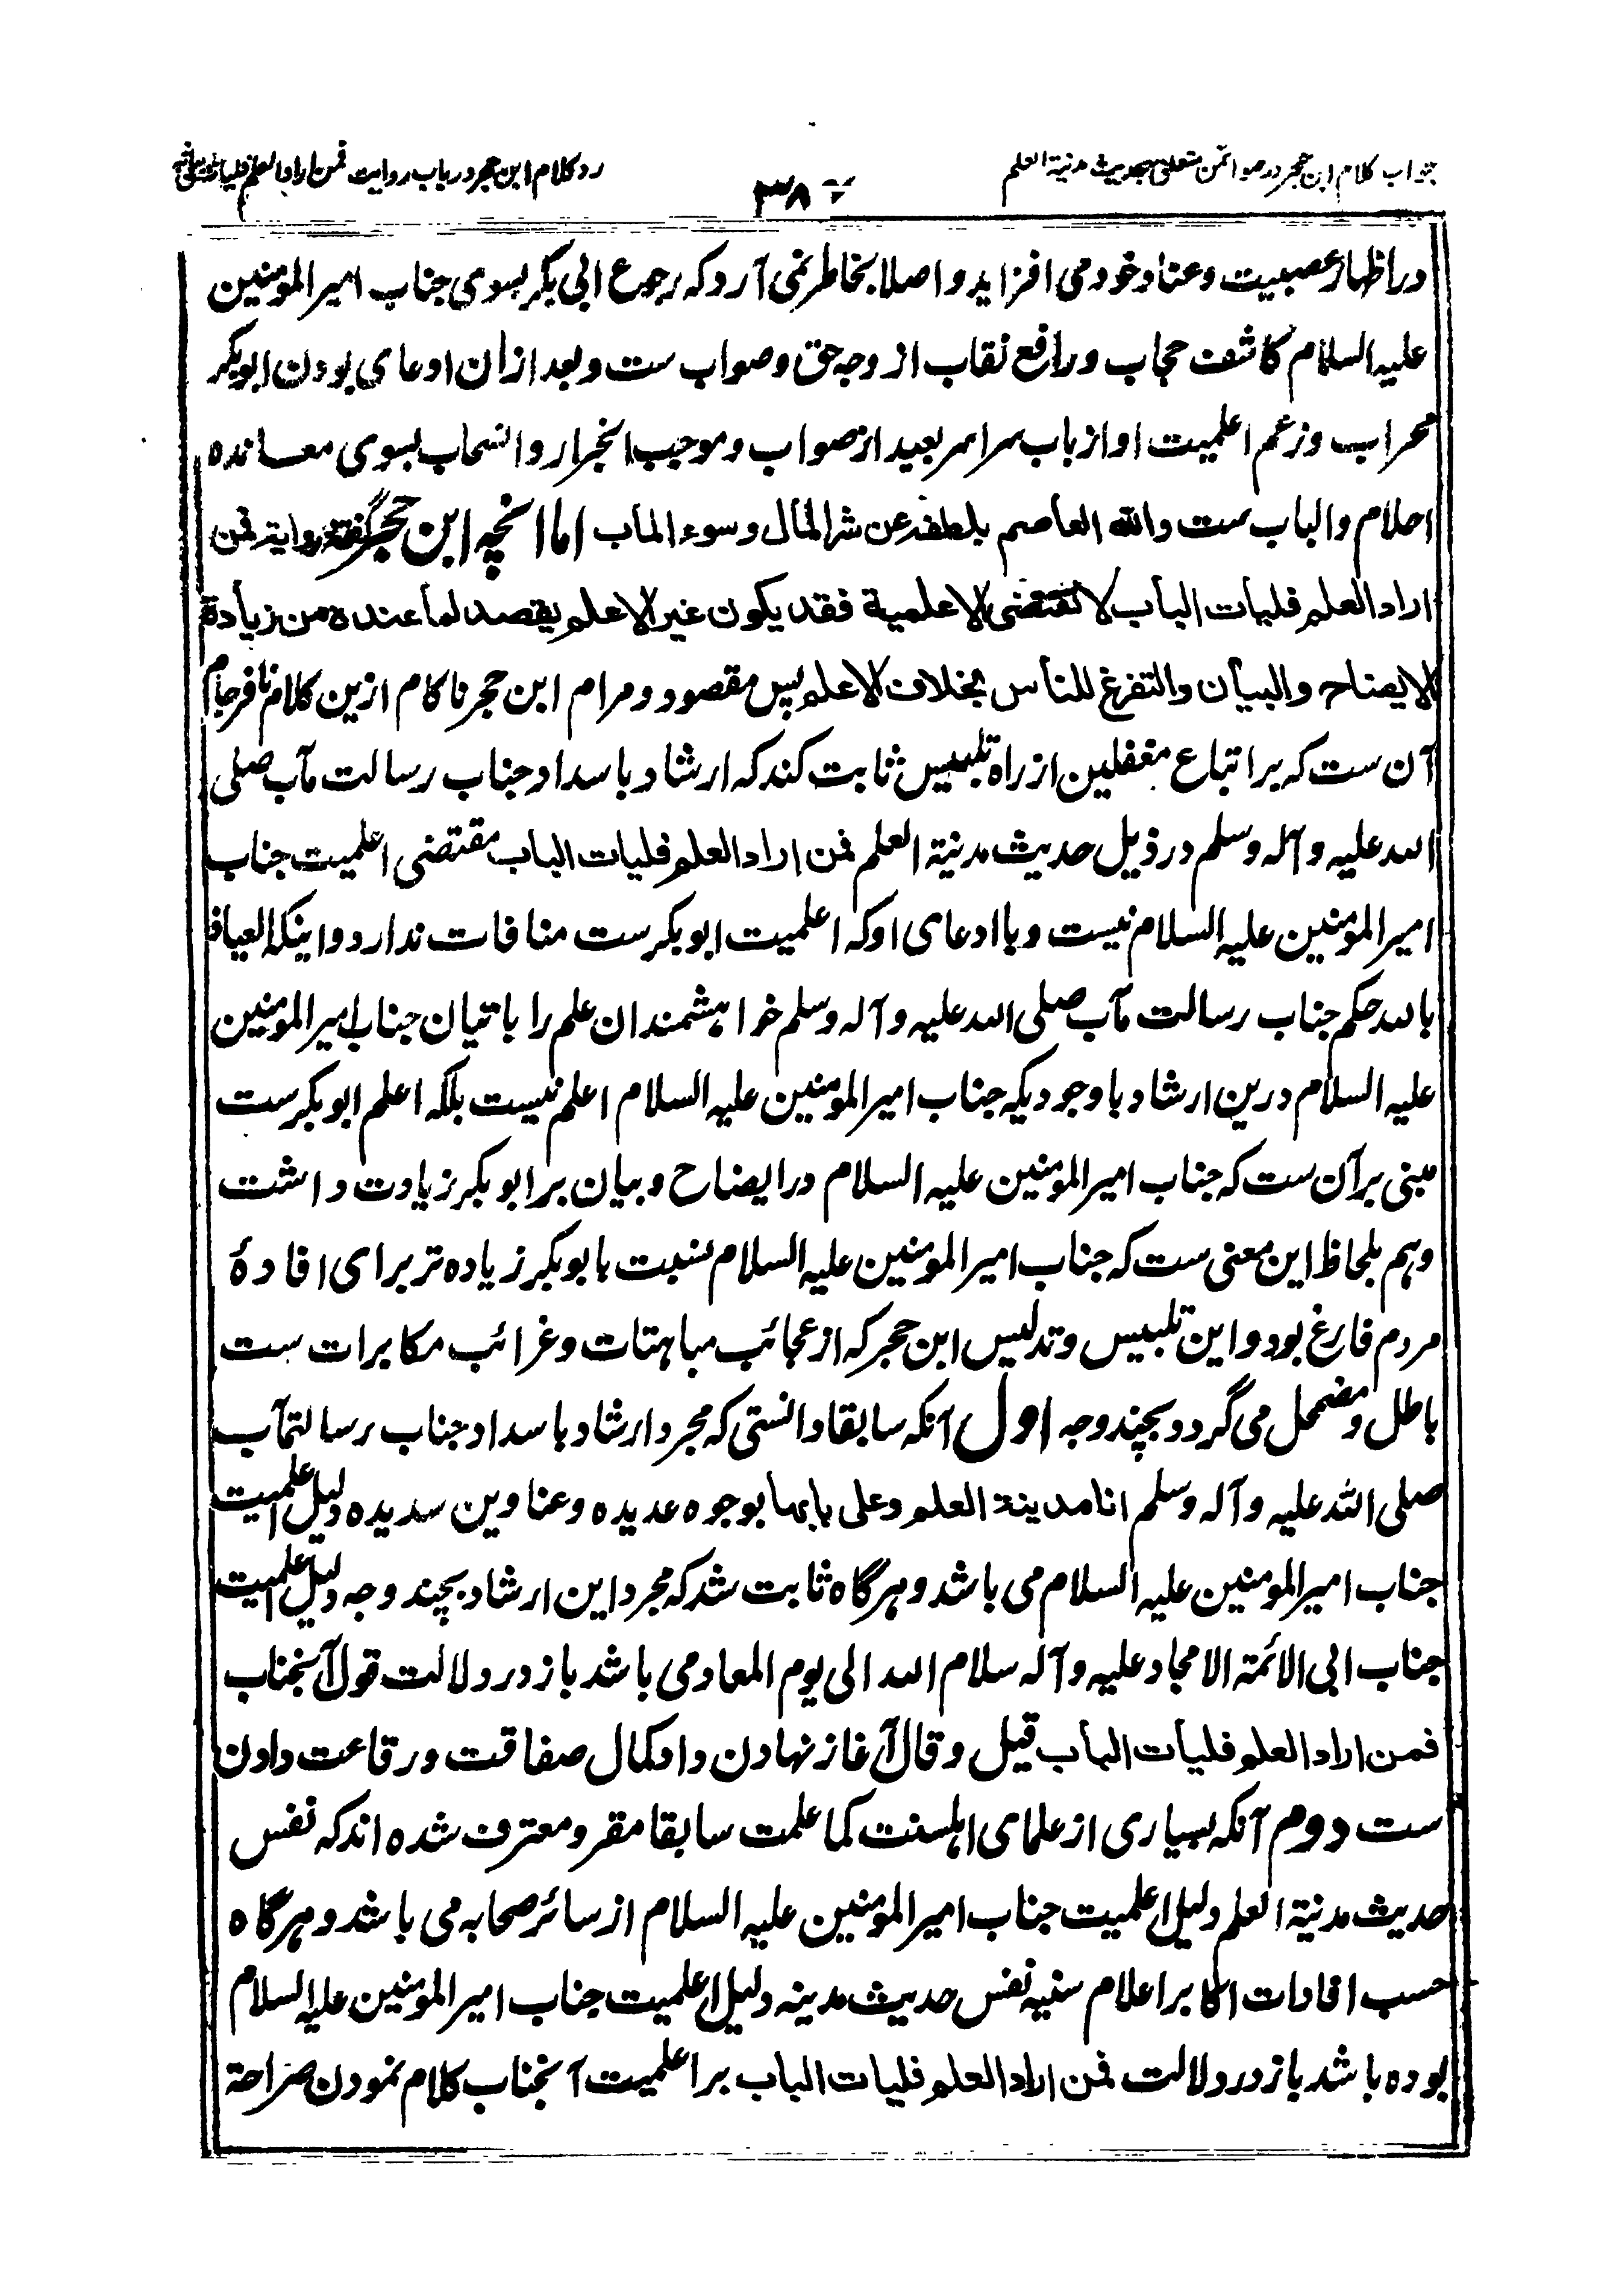 جواب کلام ابن حجر در صواعق متعلق بحدیث مدینة العلم
۳۸۰
رد کلام ابن حجر در باب روایت فمن اراد العلم فلیات
در اظهار عصبیت و عناد خود می افزاید و اصلا بخاطر نمی آرد که رجوع ابی بکر بسوی جناب امیر المومنین
علیه السلام کاشف حجاب و رافع نقاب از وجه حق و صواب ست و بعد ازان ادعای بودن ابوبکر
محراب و زعم اعلمیت او از باب سراسر بعید از صواب و موجب انجرار و انسحاب بسوی معانده
احلام و الباب ست والله العاصم بلطفه عن شر المآل و سوء المآب اما آنچه ابن حجر گفته و روایة فمن
اراد العلم فلیات الباب لا تقتضی الاعلمیة فقد یکون غیر الاعلم یقصد لما عنده من زیادة
الایضاح والبیان والتفرغ للناس بخلاف الاعلم پس مقصود و مرام ابن حجر ناکام ازین کلام نافرجام
آن ست که بر اتباع مغفلین از راه تلبیس ثابت کند که ارشاد باسداد جناب رسالت مآب صلی
الله علیه و آله وسلم در ذیل حدیث مدینة العلم فمن اراد العلم فلیات الباب مقتضی اعلمیت جناب
امیر المومنین علیه السلام نیست و با ادعای او که اعلمیت ابوبکر ست منافات ندارد و اینکه العیاذ
بالله حکم جناب رسالت مآب صلی الله علیه و آله وسلم خواهشمندان علم را باتیان جناب امیر المومنین
علیه السلام درین ارشاد با وجودیکه جناب امیر المومنین علیه السلام اعلم نیست بلکه اعلم ابوبکر ست
مبنی بر آن ست که جناب امیر المومنین علیه السلام در ایضاح و بیان بر ابوبکر زیادت داشت
و هم بلحاظ این معنی ست که جناب امیر المومنین علیه السلام نسبت بابوبکر زیاده تر برای افادۀ
مردم فارغ بود و این تلبیس و تدلیس ابن حجر که از عجائب مباهتات و غرائب مکابرات ست
باطل و مضمحل می گردد بچند وجه اول آنکه سابقا دانستی که مجرد ارشاد باسداد جناب رسالتمآب
صلی الله علیه و آله وسلم انا مدینة العلم وعلی بابها بوجوه عدیده و عناوین سدیده دلیل اعلمیت
جناب امیر المومنین علیه السلام می باشد و هرگاه ثابت شد که مجرد این ارشاد بچند وجه دلیل اعلمیت
جناب ابی الائمة الامجاد علیه و آله سلام الله الی یوم المعاد می باشد باز در دلالت قول آنجناب
فمن اراد العلم فلیات الباب قیل و قال آغاز نهادن داد کمال صفاقت و رقاعت دادن
ست دوم آنکه بسیاری از علمای اهلسنت کما علمت سابقا مقر و معترف شده اند که نفس
حدیث مدینة العلم دلیل اعلمیت جناب امیر المومنین علیه السلام از سائر صحابه می باشد و هرگاه
حسب افادات اکابر اعلام سنیه نفس حدیث مدینه دلیل اعلمیت جناب امیر المومنین علیه السلام
بوده باشد باز در دلالت فمن اراد العلم فلیات الباب بر اعلمیت آنجناب کلام نمودن صراحة